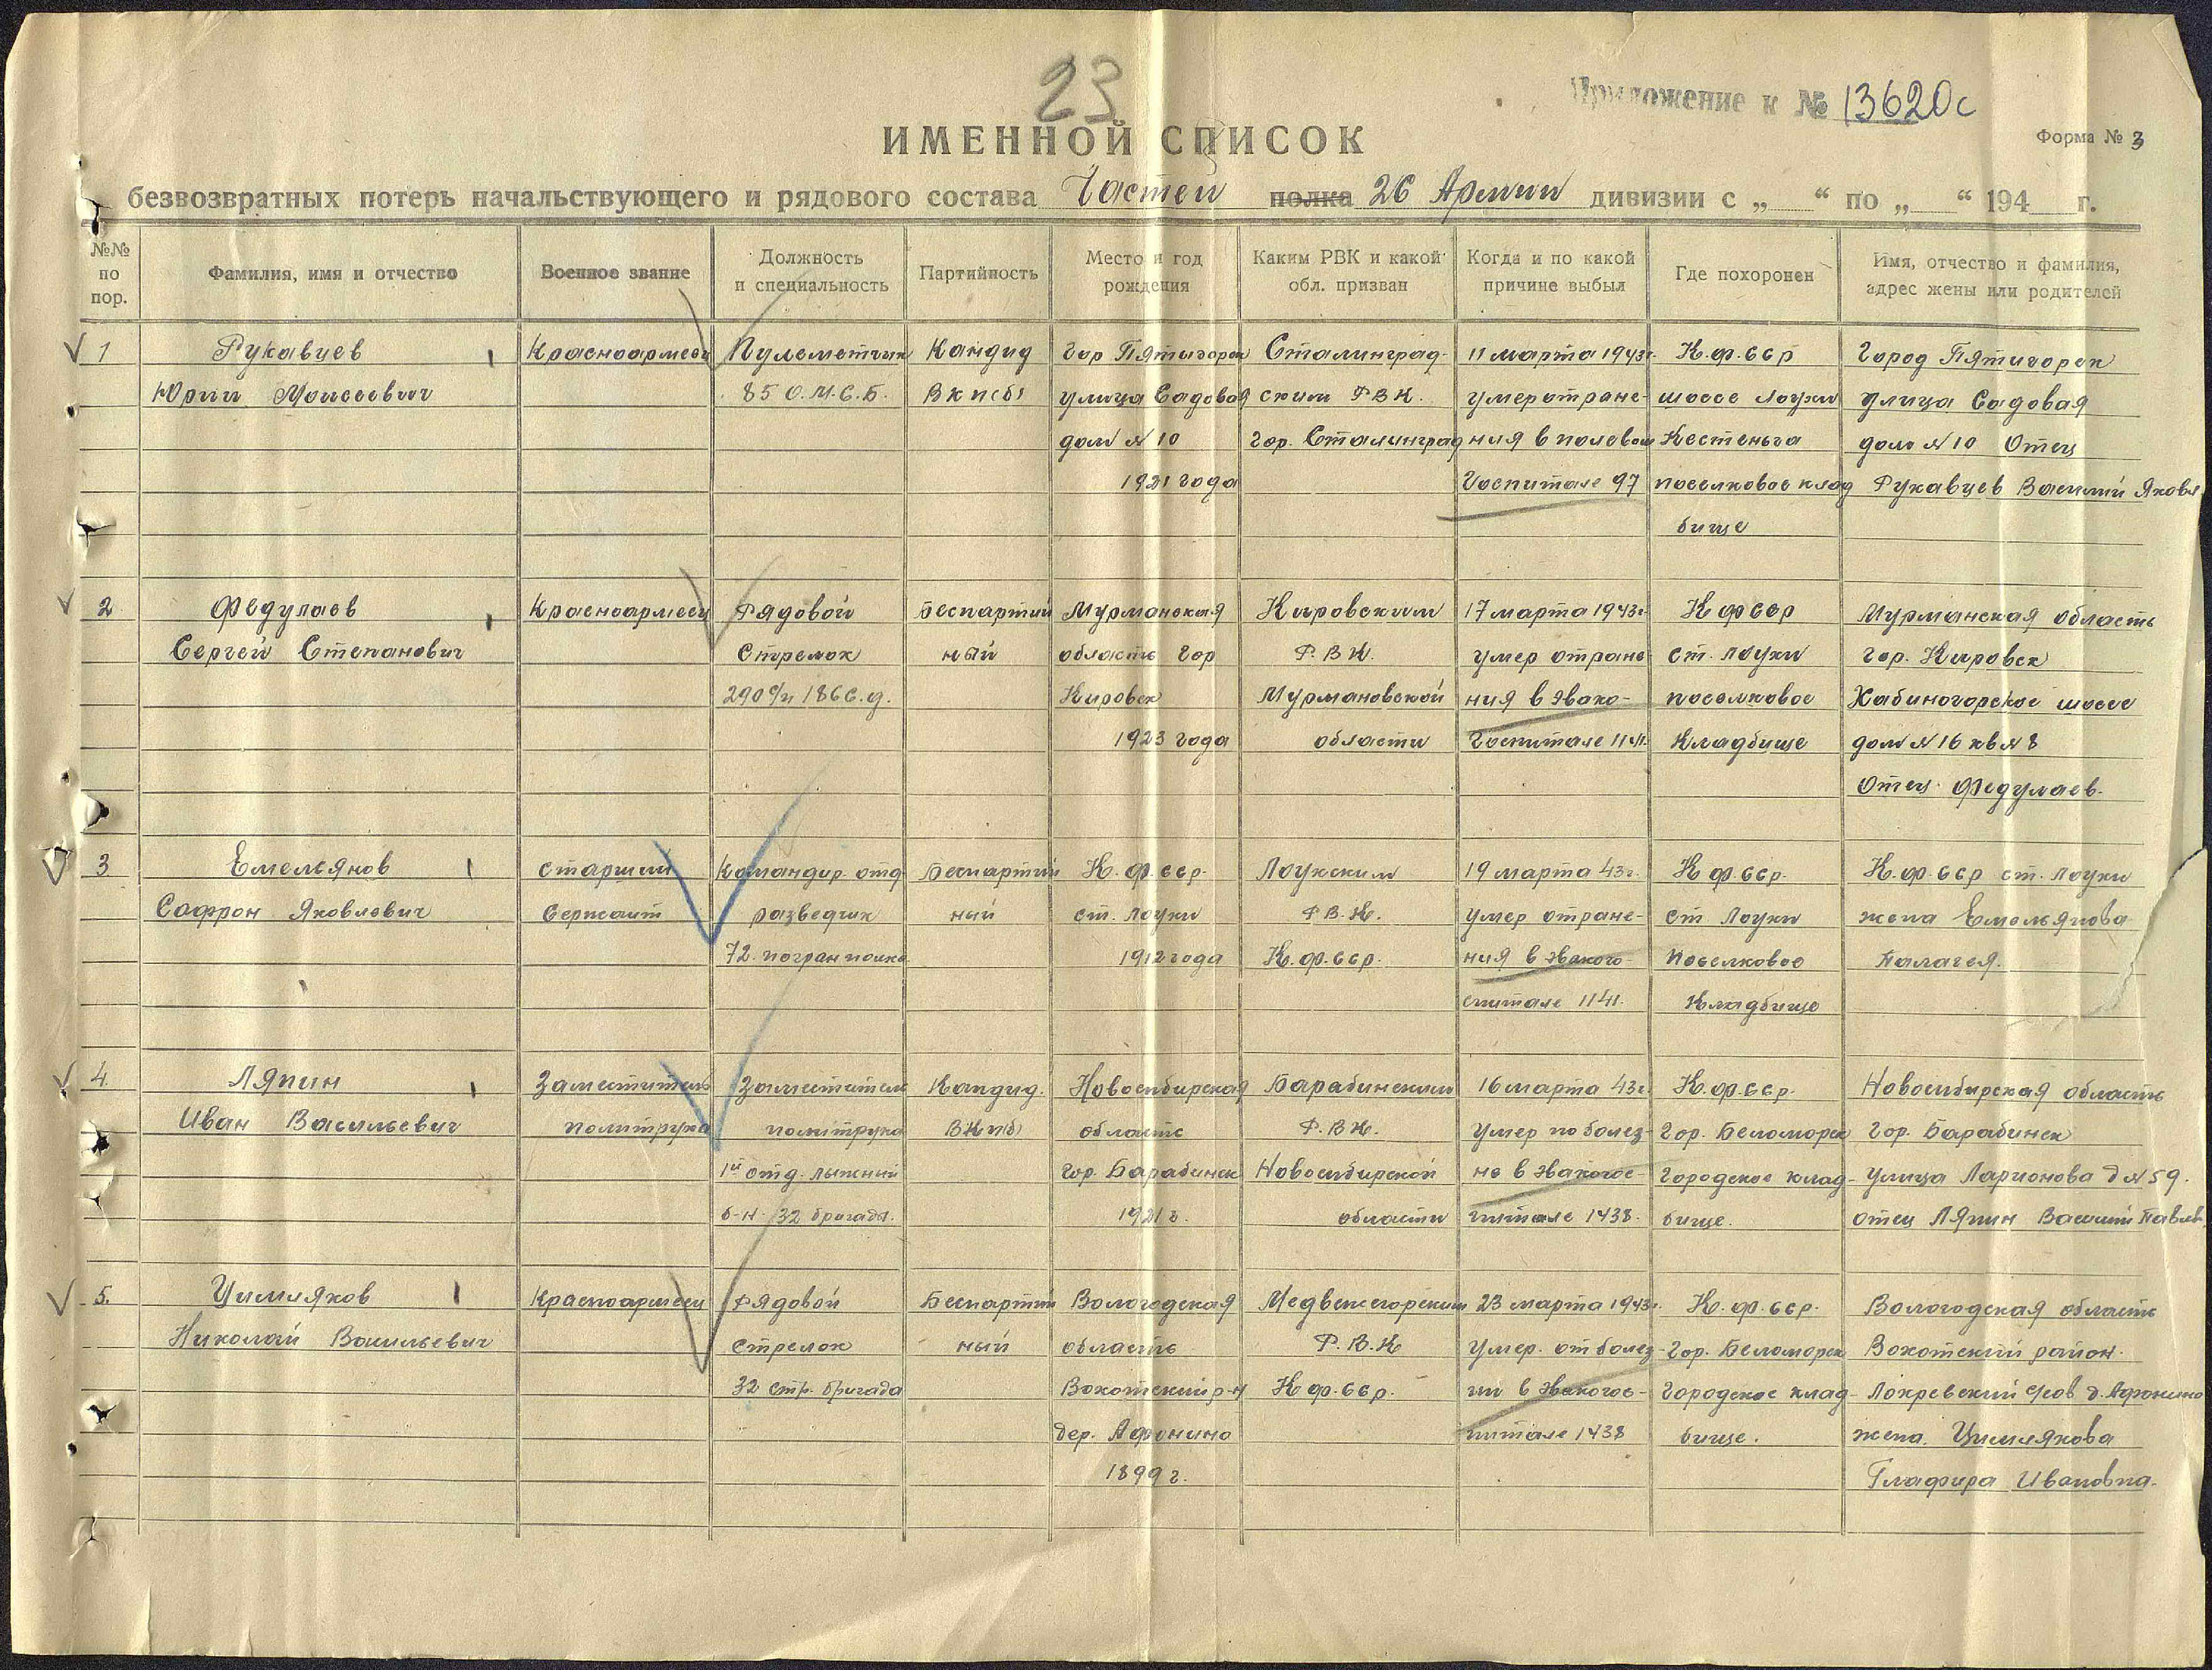 23
Приложение к № 13620с
ИМЕННОЙ СПИСОК
Форма № 3
безвозвратных потерь начальствующего и рядового состава Частей полка 26 Армии дивизии с „ “ по „ “ 194 г.
№№ по пор.
Фамилия, имя и отчество
Военное звание
Должность и специальность
Партийность
Место и год рождения
Каким РВК и какой обл. призван
Когда и по какой причине выбыл
Где похоронен
Имя, отчество и фамилия, адрес жены или родителей
1 Рукавцев Красноармеец Пулеметчик Кандид Гор Пятигорск Сталинград- 11 марта 1943г. К.ф.сср Город Пятигорск
Юрий Моисеевич 85 О.М.С.Б. ВКп(б) улица Садовая ским РВК. умер от ране- шоссе Лоухи улица Садовая
дом №10 Гор. Сталинград ния в полевом Кестеньга дом №10 Отец
1921 года Госпитале 97 поселковое клад Рукавцев Василий Яковл
бище
2 Федулаев Красноармеец Рядовой Беспартий Мурманская Кировским 17 марта 1943г. К ф сср Мурманская область
Сергей Степанович Стрелок ный область Гор Р.В.К. умер от ране ст. Лоухи гор. Кировск
290 с/п 186 с.д. Кировск Мурмановской ния в эвако- поселковое Хабиногорское шоссе
1923 года области Госпитале 1141. Кладбище дом №16 кв №8
Отец Федулаев.
3 Емельянов Старший Командир отд Беспартий К.ф.сср. Лоухским 19 марта 43г. К ф.сср. К.ф.сср ст. Лоухи
Сафрон Яковлевич Сержант разведчик ный ст. Лоухи Р.В.К. умер от ране- ст Лоухи жена Емельянова
72 погран полка 1912 года К.ф.сср. ния в эваког- Поселковое Палагея.
спитале 1141. Кладбище
4. Ляпин Заместитель Заместитель Кандид. Новосибирская Барабинским 16 марта 43г. К.ф.сср. Новосибирская область
Иван Васильевич политрука политрука ВКп(б) область Р.В.К. Умер по болез- Гор. Беломорск Гор. Барабинск
1й отд. лыжный гор. Барабинск Новосибирской не в эвакогос- Городское клад- Улица Ларионова д №59.
б-н. 32 бригады. 1921г. области питале 1438. бище. отец Ляпин Василий Павлов.
5. Цимляков Красноармеец Рядовой Беспартий Вологодская Медвежегорским 23 марта 1943г. К.ф.сср. Вологодская область
Николай Васильевич стрелок ный область Р.В.К Умер. от болез- Гор. Беломорск Вохотский район.
32 стр. бригада Вохотский р-н К ф.сср. ни в эвакогос- Городское клад- д. Афонино
дер. Афонино питале 1438 бище. жена. Цимлякова
1899г. Глафира Ивановна.